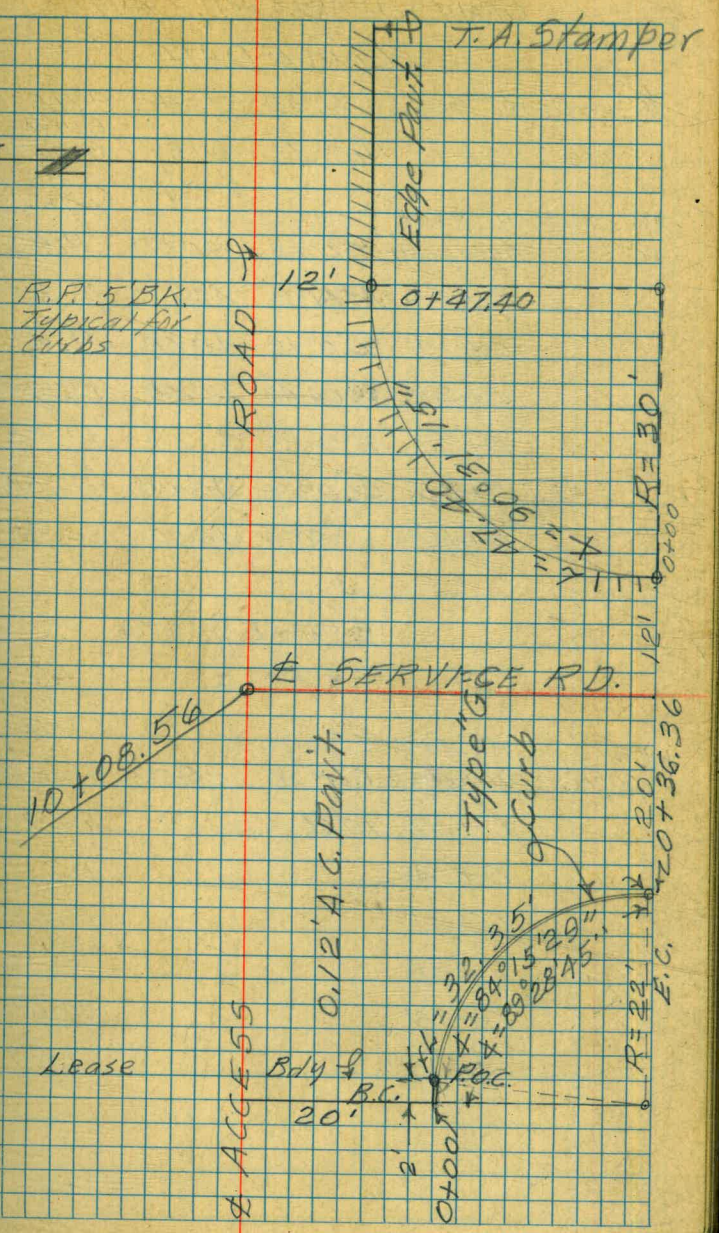 T. A. Stamper
Edge Pavt.
R.P. 5' BK.
Typical for
Curbs
12'
0+47.40
ROAD
R=30'
0+00
12'
℄ SERVICE RD.
10+08.56
0.12' A.C. Pavt.
Type "G"
Curb
20'
0+36.36
E.C.
R=22'
L = 32.35'
∡=84°15'29"
∡=89°28'45"
℄ ACCESS
Lease
Bdy
B.C.
P.O.C.
20'
2'
0+00